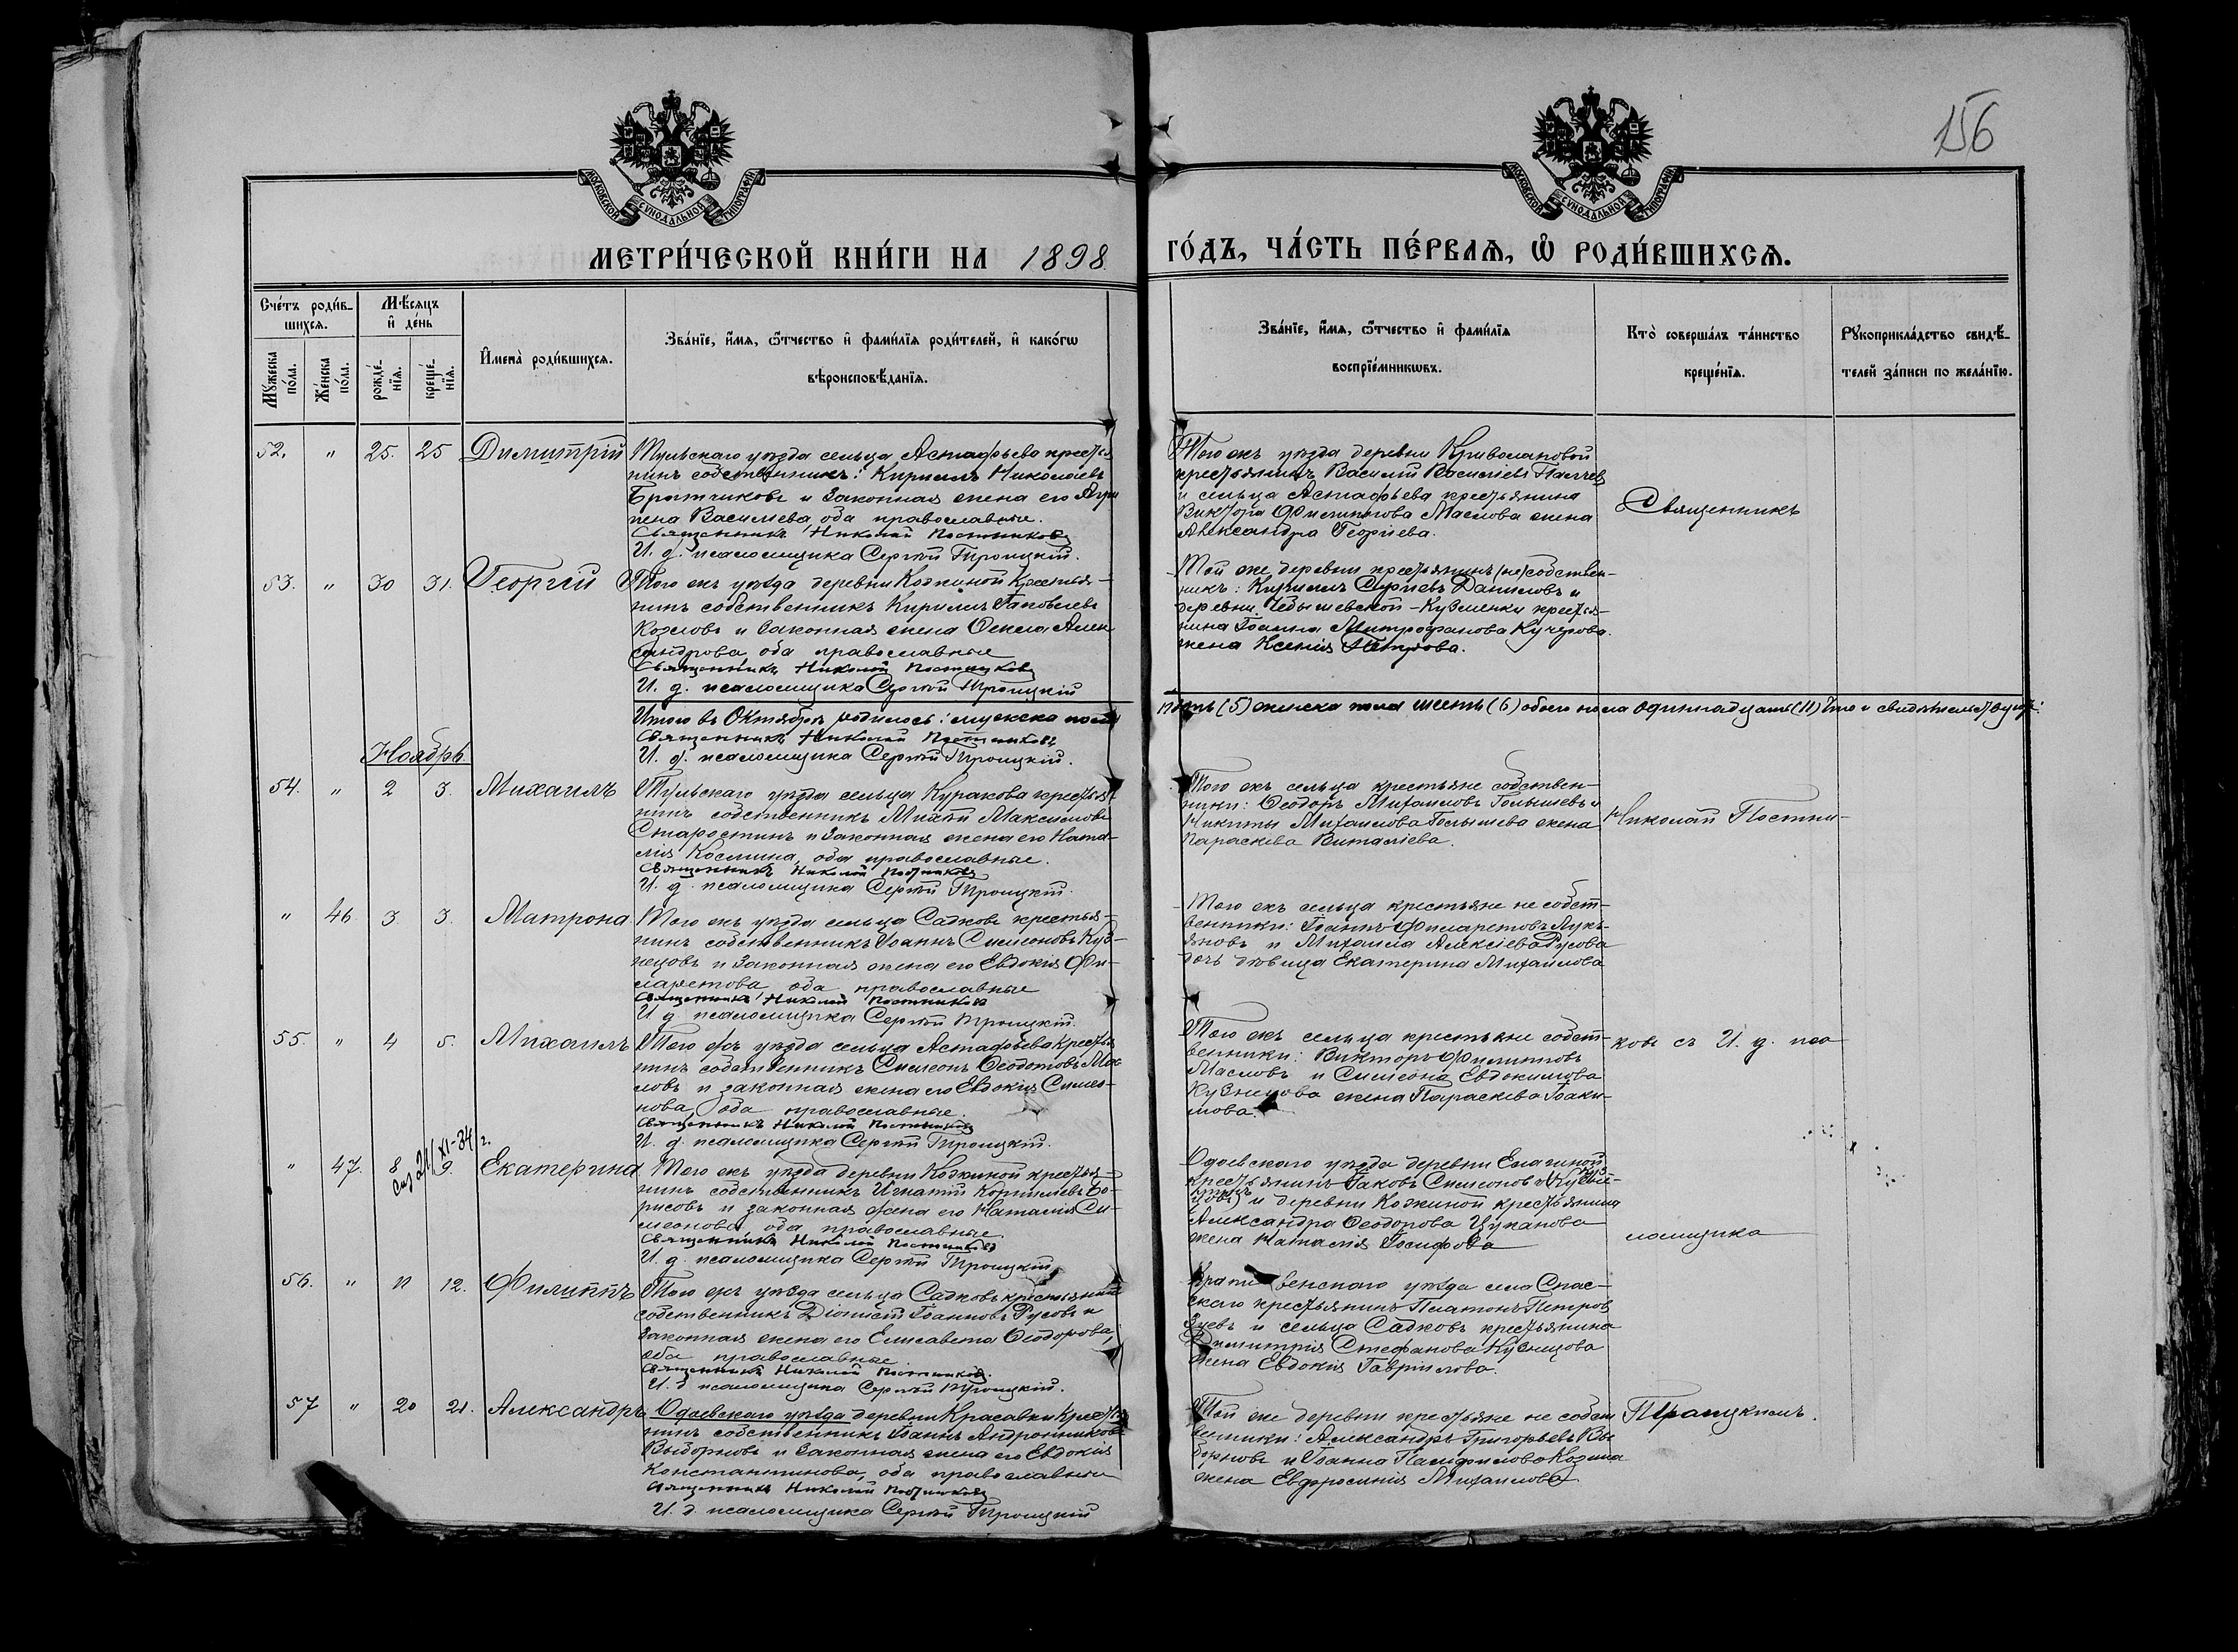 156
МОСКОВСКОЙ СУНОДАЛЬНОЙ ТИПОГРАФІИ
МОСКОВСКОЙ СУНОДАЛЬНОЙ ТИПОГРАФІИ
МЕТРИ́ЧЕСКОЙ КНИ́ГИ НА 1898
ГО́ДЪ, ЧА́СТЬ ПЕ́РВАѦ, Ѡ҆ РОДИ́ВШИХСѦ.
Сче́тъ роди́в-
шихсѧ.
Мѣ́сѧцъ
и҆ де́нь
Мꙋ́жеска
по́ла.
Же́нска
по́ла.
рожде́-
нїѧ.
креще́-
нїѧ.
И҆мена̀ роди́вшихсѧ.
Зва́нїе, и҆́мѧ, ѻ҆́тчество и҆ фами́лїѧ роди́телей, и҆ како́гѡ
вѣроисповѣ́данїѧ.
Зва́нїе, и҆́мѧ, ѻ҆́тчество и҆ фами́лїѧ
воспрїе́мникѡвъ.
Кто̀ соверша́лъ та́инство
креще́нїѧ.
Рꙋкоприкла́дство свидѣ́-
телей за́писи по жела́нїю.
52. " 25. 25 Димитрій
Тульскаго уѣзда сельца Астафьева крестья-
нинъ собственникъ: Кириллъ Николаевъ
Братчиковъ и законная жена его Агри
пена Васильева, оба православные.
Священникъ Николай Постниковъ
И. д. псаломщика Сергѣй Троицкій.
Того жъ уѣзда деревни Криволаповой
крестьянинъ Василій Василіевъ
и сельца Астафьева крестьянина
Виктора Филиппова Маслова жена
Александра Георгіева.
Священникъ
53. " 30 31. Георгій
Того жъ уѣзда деревни Кожиной крестья-
нинъ собственникъ Кириллъ Іаковлевъ
Козловъ и законная жена Ѳекла Алек-
сандрова, оба православные
Священникъ Николай Постниковъ
И. д. псаломщика Сергѣй Троицкій
Той же деревни крестьянинъ (не) собствен-
никъ: Кириллъ Сергіевъ Даниловъ и
деревни Чебышевской-Кузменки крестья-
нина Іоанна Митрофанова Кучерова
жена Ксенія Петрова.
Итого въ Октябрѣ родилось: мужеска пола
пять (5) женска пола шесть (6) обоего пола одиннадцать (11) Что и свидѣтельствуютъ:
Священникъ Николай Постниковъ
И. д. псаломщика Сергѣй Троицкій.
Ноябрь
54. " 2 3. Михаилъ
Тульскаго уѣзда сельца Куракова крестья-
нинъ собственникъ Михей Максимовъ
Старостинъ и законная жена его Ната-
лія Космина, оба православные.
Священникъ Николай Постниковъ
И. д. псаломщика Сергѣй Троицкій.
Того жъ сельца крестьяне собствен-
ники: Ѳеодоръ Михаиловъ Голышевъ и
Никиты Михаилова Голышева жена
Параскева Виталіева.
Николай Постни-
" 46. 3. 3. Матрона
Того жъ уѣзда сельца Садковъ крестья-
нинъ собственникъ Іоаннъ Симеоновъ Куз-
нецовъ и законная жена его Евдокія Фи-
ларетова, оба православные
Священникъ Николай Постниковъ
И. д. псаломщика Сергѣй Троицкій.
Того жъ сельца крестьяне не собст-
венники: Іоаннъ Филаретовъ Лукь-
яновъ и Михаила Алексіева Русова
дочь дѣвица Екатерина Михаилова
55. " 4 5. Михаилъ
Того жъ уѣзда сельца Астафьева крестья
нинъ собственникъ Симеонъ Ѳеодотовъ Мас
ловъ и законная жена его Евдокія Симео-
нова, оба православные.
Священникъ Николай Постниковъ
И. д. псаломщика Сергѣй Троицкій.
Того жъ сельца крестьяне собст-
венники: Викторъ Филипповъ
Масловъ и Симеона Евдокимова
Кузнецова жена Параскева Іоаки-
мова.
ковъ съ И. д. пса
21/XI-34 г.
" 47. 8 9. Екатерина
Того жъ уѣзда деревни Кожиной крестья-
нинъ собственникъ Игнатій Корнилievъ Бо-
рисовъ и законная жена его Наталія Си-
меонова, оба православные.
Священникъ Николай Постниковъ
И. д. псаломщика Сергѣй Троицкій
Одоевскаго уѣзда деревни Елагиной
крестьянинъ Іаковъ Симеоновъ
и деревни Кожиной крестьянина
Александра Ѳеодорова Цуканова
жена Наталія Іосифова
ломщика
56. " 11 12. Филиппъ
Того жъ уѣзда сельца Садковъ крестьянинъ
собственникъ Діонисій Іоанновъ Русовъ и
законная жена его Елисавета Ѳеодорова,
оба православные.
Священникъ Николай Постниковъ.
И. д. псаломщика Сергѣй Троицкій.
Крапивенскаго уѣзда села Спас-
скаго крестьянинъ Платонъ Петровъ
Зуевъ и сельца Садковъ крестьянина
Димитрія Стефанова Кузнецова
жена Евдокія Гавріилова.
57 " 20 21. Александръ
Одоевскаго уѣзда деревни Красавки крестья
нинъ собственникъ Іоаннъ Андрониковъ
Выборновъ и законная жена его Евдокія
Константинова, оба православные
Священникъ Николай Постниковъ
И. д. псаломщика Сергѣй Троицкій
Той же деревни крестьяне не собст
венники: Александръ Григорьевъ Вы
борновъ и Іоанна Памфилова Козина
жена Евфросинія Михаилова
Троицкимъ.